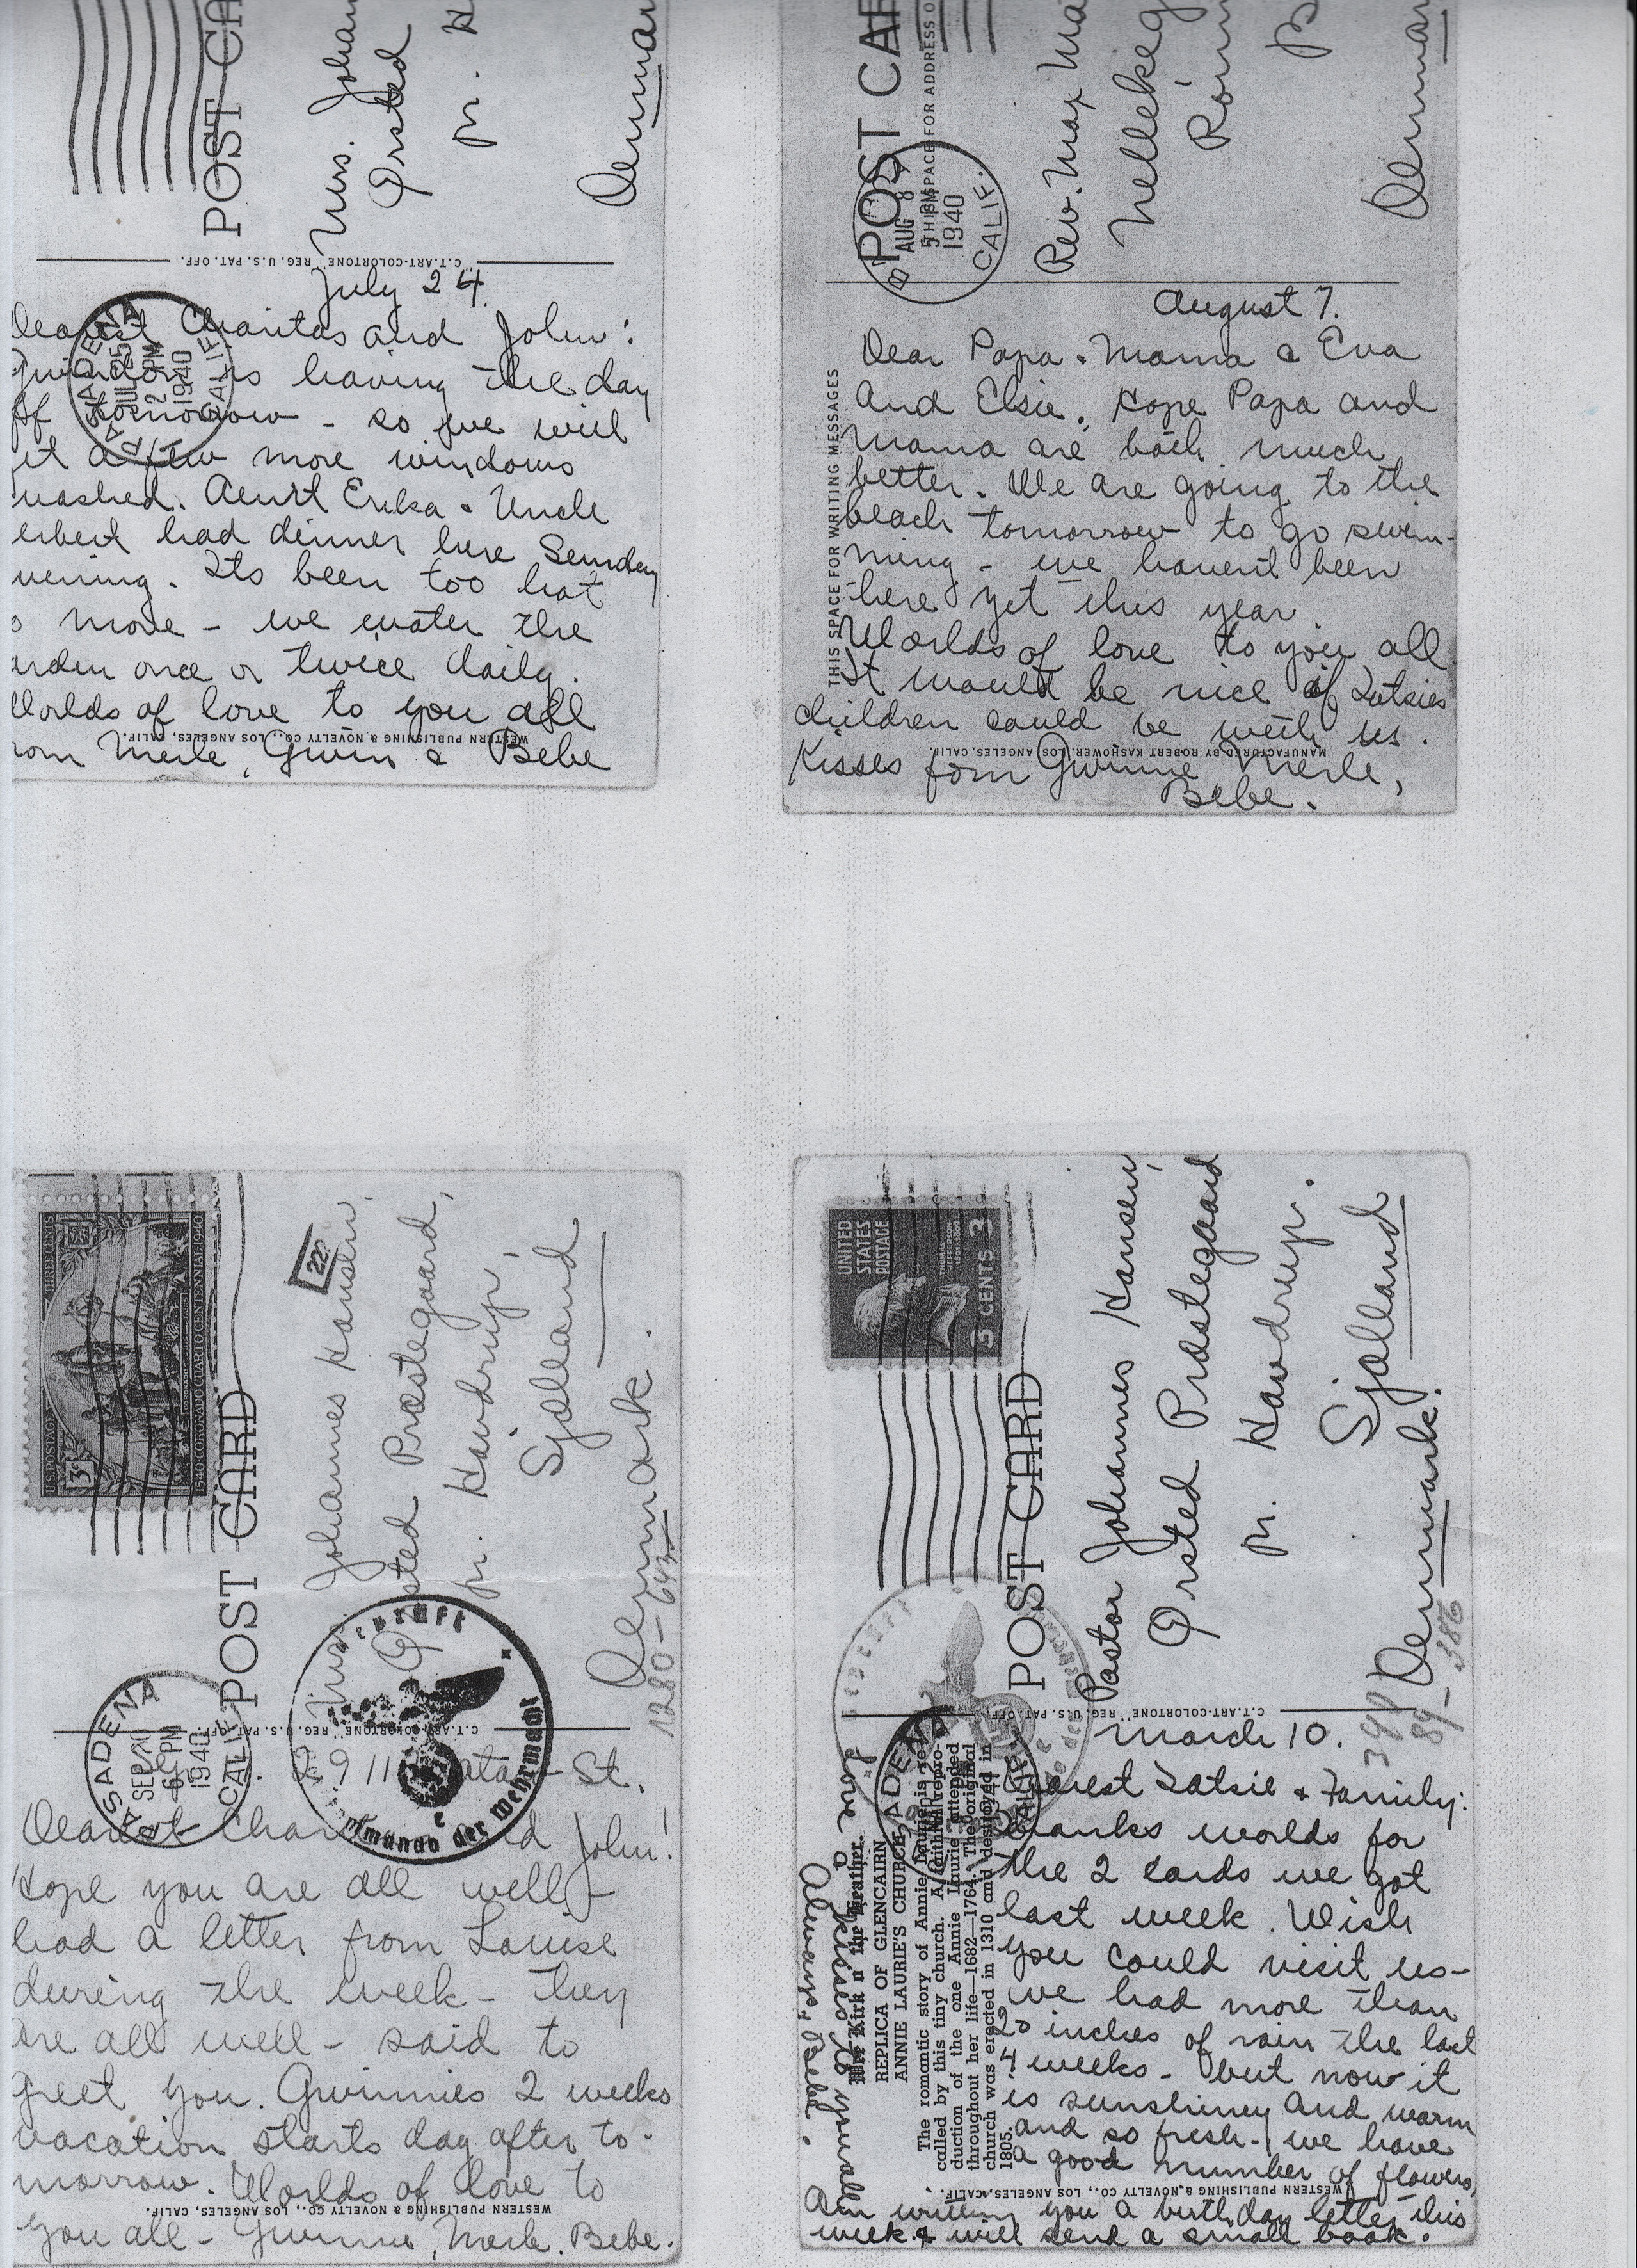 POST CA
Mrs. Johan
Ørsted
pr. H
Denmar
C.T. ART-COLORTONE, REG. U.S. PAT. OFF.
PASADENA
JUL 25
2 PM
1940
CALIF.
July 24.
Dearest Charitas and John:
is having the day
ff tomorrow - so we will
et a few more windows
washed. Aunt Erika & Uncle
erbert had dinner here Sunday
vening. Its been too hot
o move - we water the
arden once or twice daily.
Worlds of love to you all
rom Merle, Gwin & Bebe
WESTERN PUBLISHING & NOVELTY CO., LOS ANGELES, CALIF.
POST CAR
THIS SPACE FOR ADDRESS O
AUG 8
5 PM
1940
CALIF.
Rev. Max Ma
Helleke
Rønn
B
Denmar
THIS SPACE FOR WRITING MESSAGES
August 7.
Dear Papa & Mama & Eva
and Elsie. Hope Papa and
Mama are both much
better. We are going to the
beach tomorrow to go swim-
ming - we havent been
there yet this year.
Worlds of love to you all
It would be nice if Lutsies
children could be with us.
Kisses form Gwinnie Merle,
Bebe.
MANUFACTURED BY ROBERT KASHOWER, LOS ANGELES, CALIF.
U.S. POSTAGE
THREE CENTS
3¢
1540-CORONADO CUARTO CENTENNIAL-1940
POST CARD
PASADENA
SEP 20
6 PM
1940
CALIF.
222
Johannes Hansen,
Ørsted Præstegaard,
pr. Havdrup,
Sjælland
Denmark.
1280-643
Geprüft
Oberkommando der Wehrmacht
e
C.T. ART-COLORTONE, REG. U.S. PAT. OFF.
St.
Dearest Char d John!
Hope you are all well -
had a letter from Louise
during the week - they
are all well - said to
greet you. Gwinnies 2 weeks
vacation starts day after to-
morrow. Worlds of love to
you all - Gwinnie, Merle. Bebe.
WESTERN PUBLISHING & NOVELTY CO., LOS ANGELES, CALIF.
UNITED
STATES
POSTAGE
3 CENTS 3
POST CARD
Pastor Johannes Hansen,
Ørsted Præstegaard
pr. Havdrup.
Sjælland
Denmark.
C.T. ART-COLORTONE, REG. U.S. PAT. OFF.
March 10.
Dearest Lutsie & Family:
Thanks worlds for
the 2 cards we got
last week. Wish
you could visit us -
we had more than
20 inches of rain the last
4 weeks - but now it
is sunshiney and warm
and so fresh - we have
a good number of flowers,
Am writing you a birthday letter this
week & will send a small book.
Love &
kisses to you all
Always, Bebe.
Wee Kirk o' the Heather.
REPLICA OF GLENCAIRN
ANNIE LAURIE'S CHURCH
The romantic story of Annie Laurie is re-
called by this tiny church. A faithful repro-
duction of the one Annie Laurie attended
throughout her life—1682—1764. The original
church was erected in 1310 and destroyed in
1805.
WESTERN PUBLISHING & NOVELTY CO., LOS ANGELES, CALIF.